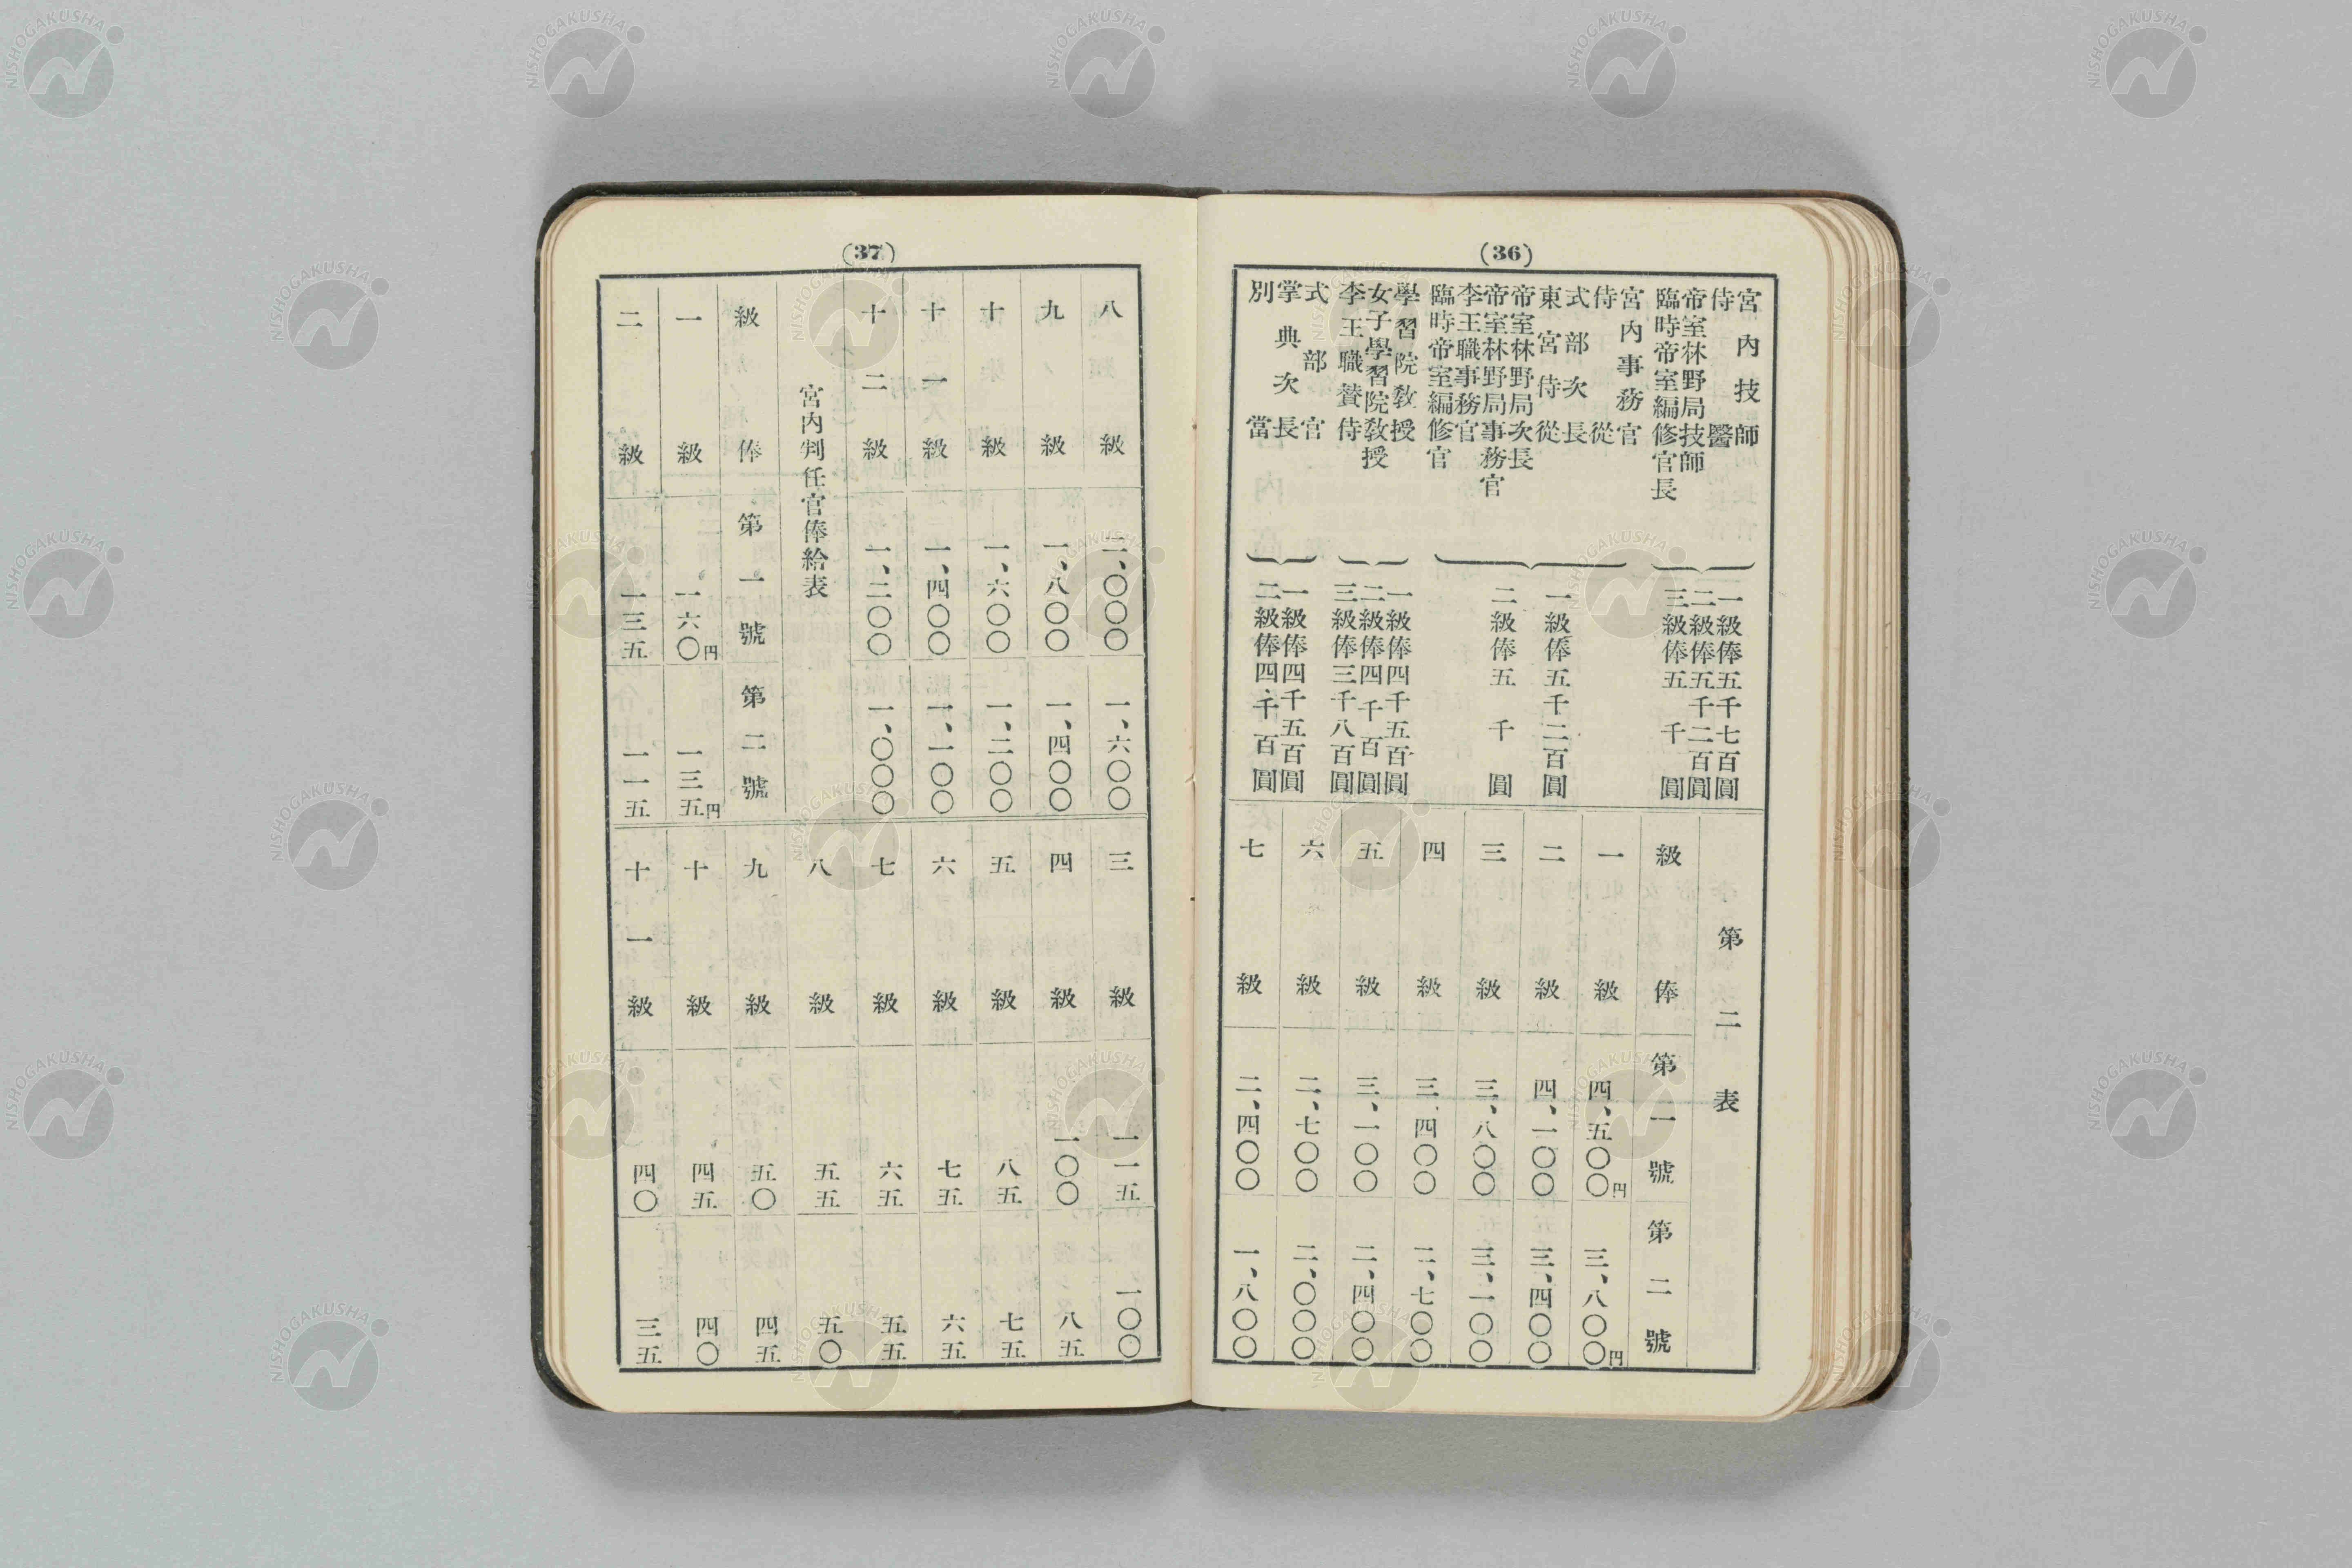 (36)
宮內技師
侍醫
帝室林野局技師
臨時帝室編修官長
一級俸五千七百圓
二級俸五千二百圓
三級俸五千圓
宮內事務官
侍從
式部次長
東宮侍從
帝室林野局次長
帝室林野局事務官
李王職事務官
臨時帝室編修官
一級俸五千二百圓
二級俸五千圓
學習院教授
女子學習院教授
李王職贊侍
一級俸四千五百圓
二級俸四千百圓
三級俸三千八百圓
式部官
掌典次長
別當
一級俸四千五百圓
二級俸四千百圓
第二表
級俸 第一號 第二號
一級 四、五〇〇円 三、八〇〇円
二級 四、一〇〇 三、四〇〇
三級 三、八〇〇 三、一〇〇
四級 三、四〇〇 二、七〇〇
五級 三、一〇〇 二、四〇〇
六級 二、七〇〇 二、〇〇〇
七級 二、四〇〇 一、八〇〇
(37)
八級 二、〇〇〇 一、六〇〇
九級 一、八〇〇 一、四〇〇
十級 一、六〇〇 一、二〇〇
十一級 一、四〇〇 一、一〇〇
十二級 一、二〇〇 一、〇〇〇
宮內判任官俸給表
級俸 第一號 第二號
一級 一六〇円 一三五円
二級 一三五 一一五
三級 一一五 一〇〇
四級 一〇〇 八五
五級 八五 七五
六級 七五 六五
七級 六五 五五
八級 五五 五〇
九級 五〇 四五
十級 四五 四〇
十一級 四〇 三五
NISHOGAKUSHA